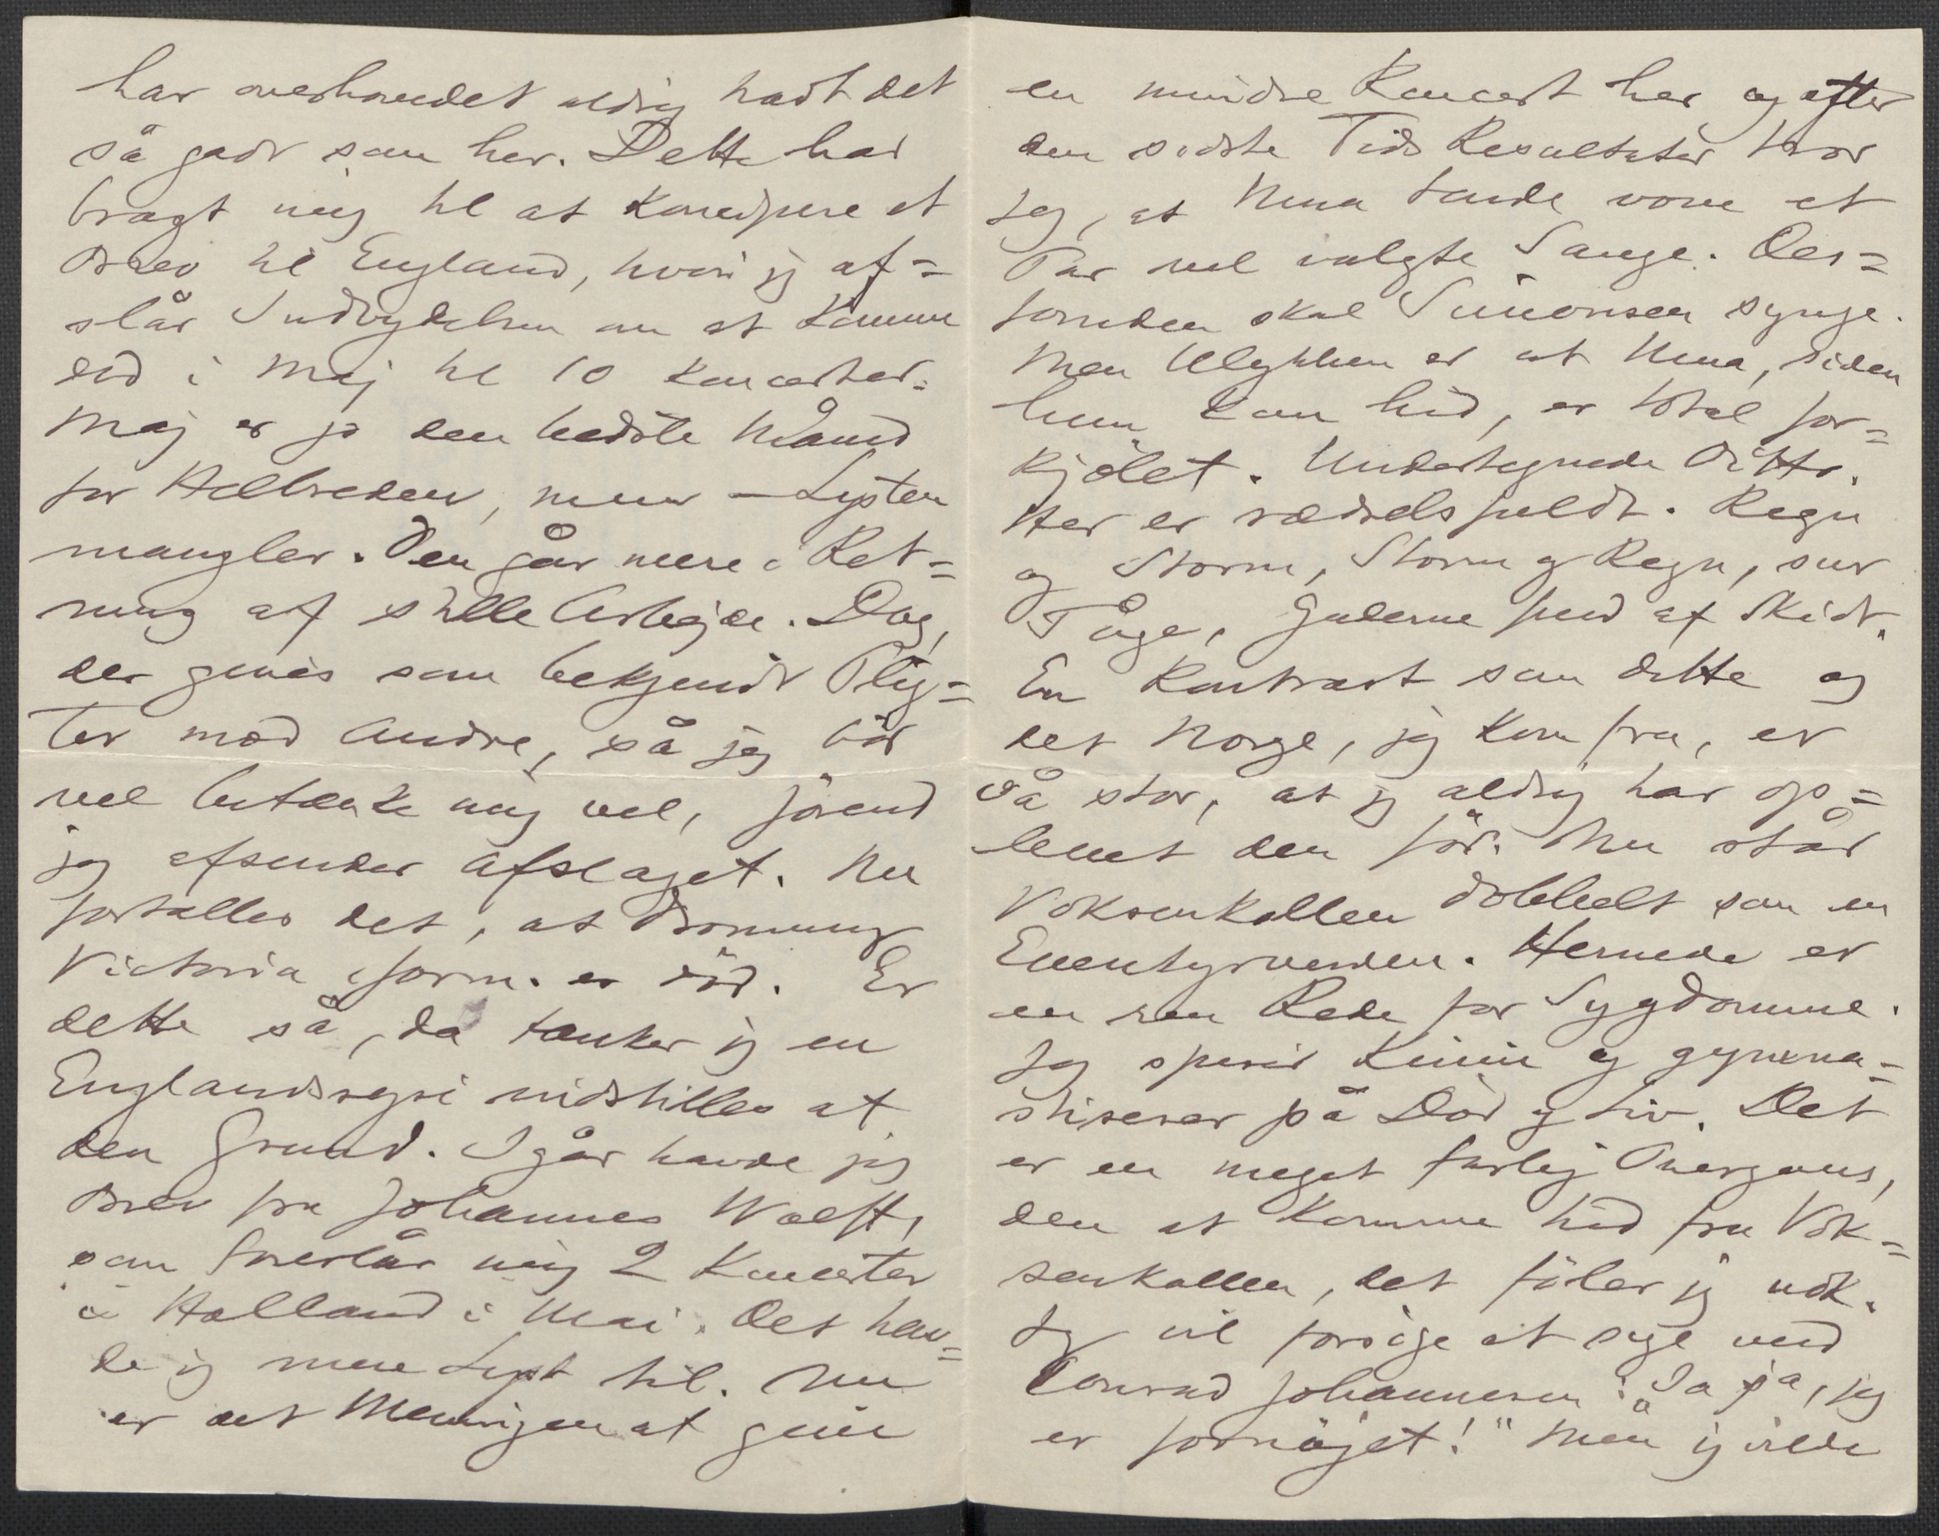 har overhovedet aldrig havt det
så godt som her. Dette har
bragt mig til at koncipere et
Brev til England, hvori jg af=
slår Indbydelsen om at komme
did i Maj til 10 Koncerter.
Maj er jo den bedste Måned
for Helbreden, men – Lysten
mangler. Den går mere i Ret=
ning af stille Arbejde. Dog,
der gives som bekjendt Plig=
ter mod Andre, så jeg bör
vel betænke mig vel, förend
jeg afsender Afslaget. Nu
fortælles det, at Dronning
Victoria iform. er död. Er
dette så, da tænker jg en
Englandsrejse indstilles af
den Grund. Igår havde jeg
Brev fra Johannes Wolff,
som foreslår mig 2 Koncerter
i Holland i Mai. Det hav=
de jg mere Lyst til. Nu
er det Meningen at give
en mindre Koncert her og efter
den sidste Tids Resultater tror
jeg, at Nina turde vove et
Par vel valgte Sange. Des=
foruden skal Simonsen synge.
Men Ulykken er at Nina, siden
hun kom hid, er total for=
kjölet. Undertegnede Ditto.
Her er rædselsfuldt. Regn
og Storm, Storm og Regn, sur
Tåge, Gaderne fuld af Skidt.
En Kontrast som dette og
det Norge, jeg kom fra, er
så stor, at jg aldrig har op=
levet den för. Nu står
Voksenkollen dobbelt som en
Eventyrverden. Hernede er
en ren Rede for Sygdomme.
Jeg spiser Kinin og gymna=
stiserer på Död og Liv. Det
er en meget farlig Overgang,
den at komme hid fra Vok=
senkollen, det föler jg nok.
Jeg vil forsöge at sige med
Conrad Johannesen: "Ja ja, jeg
er fornöjet!" Men jg vilde